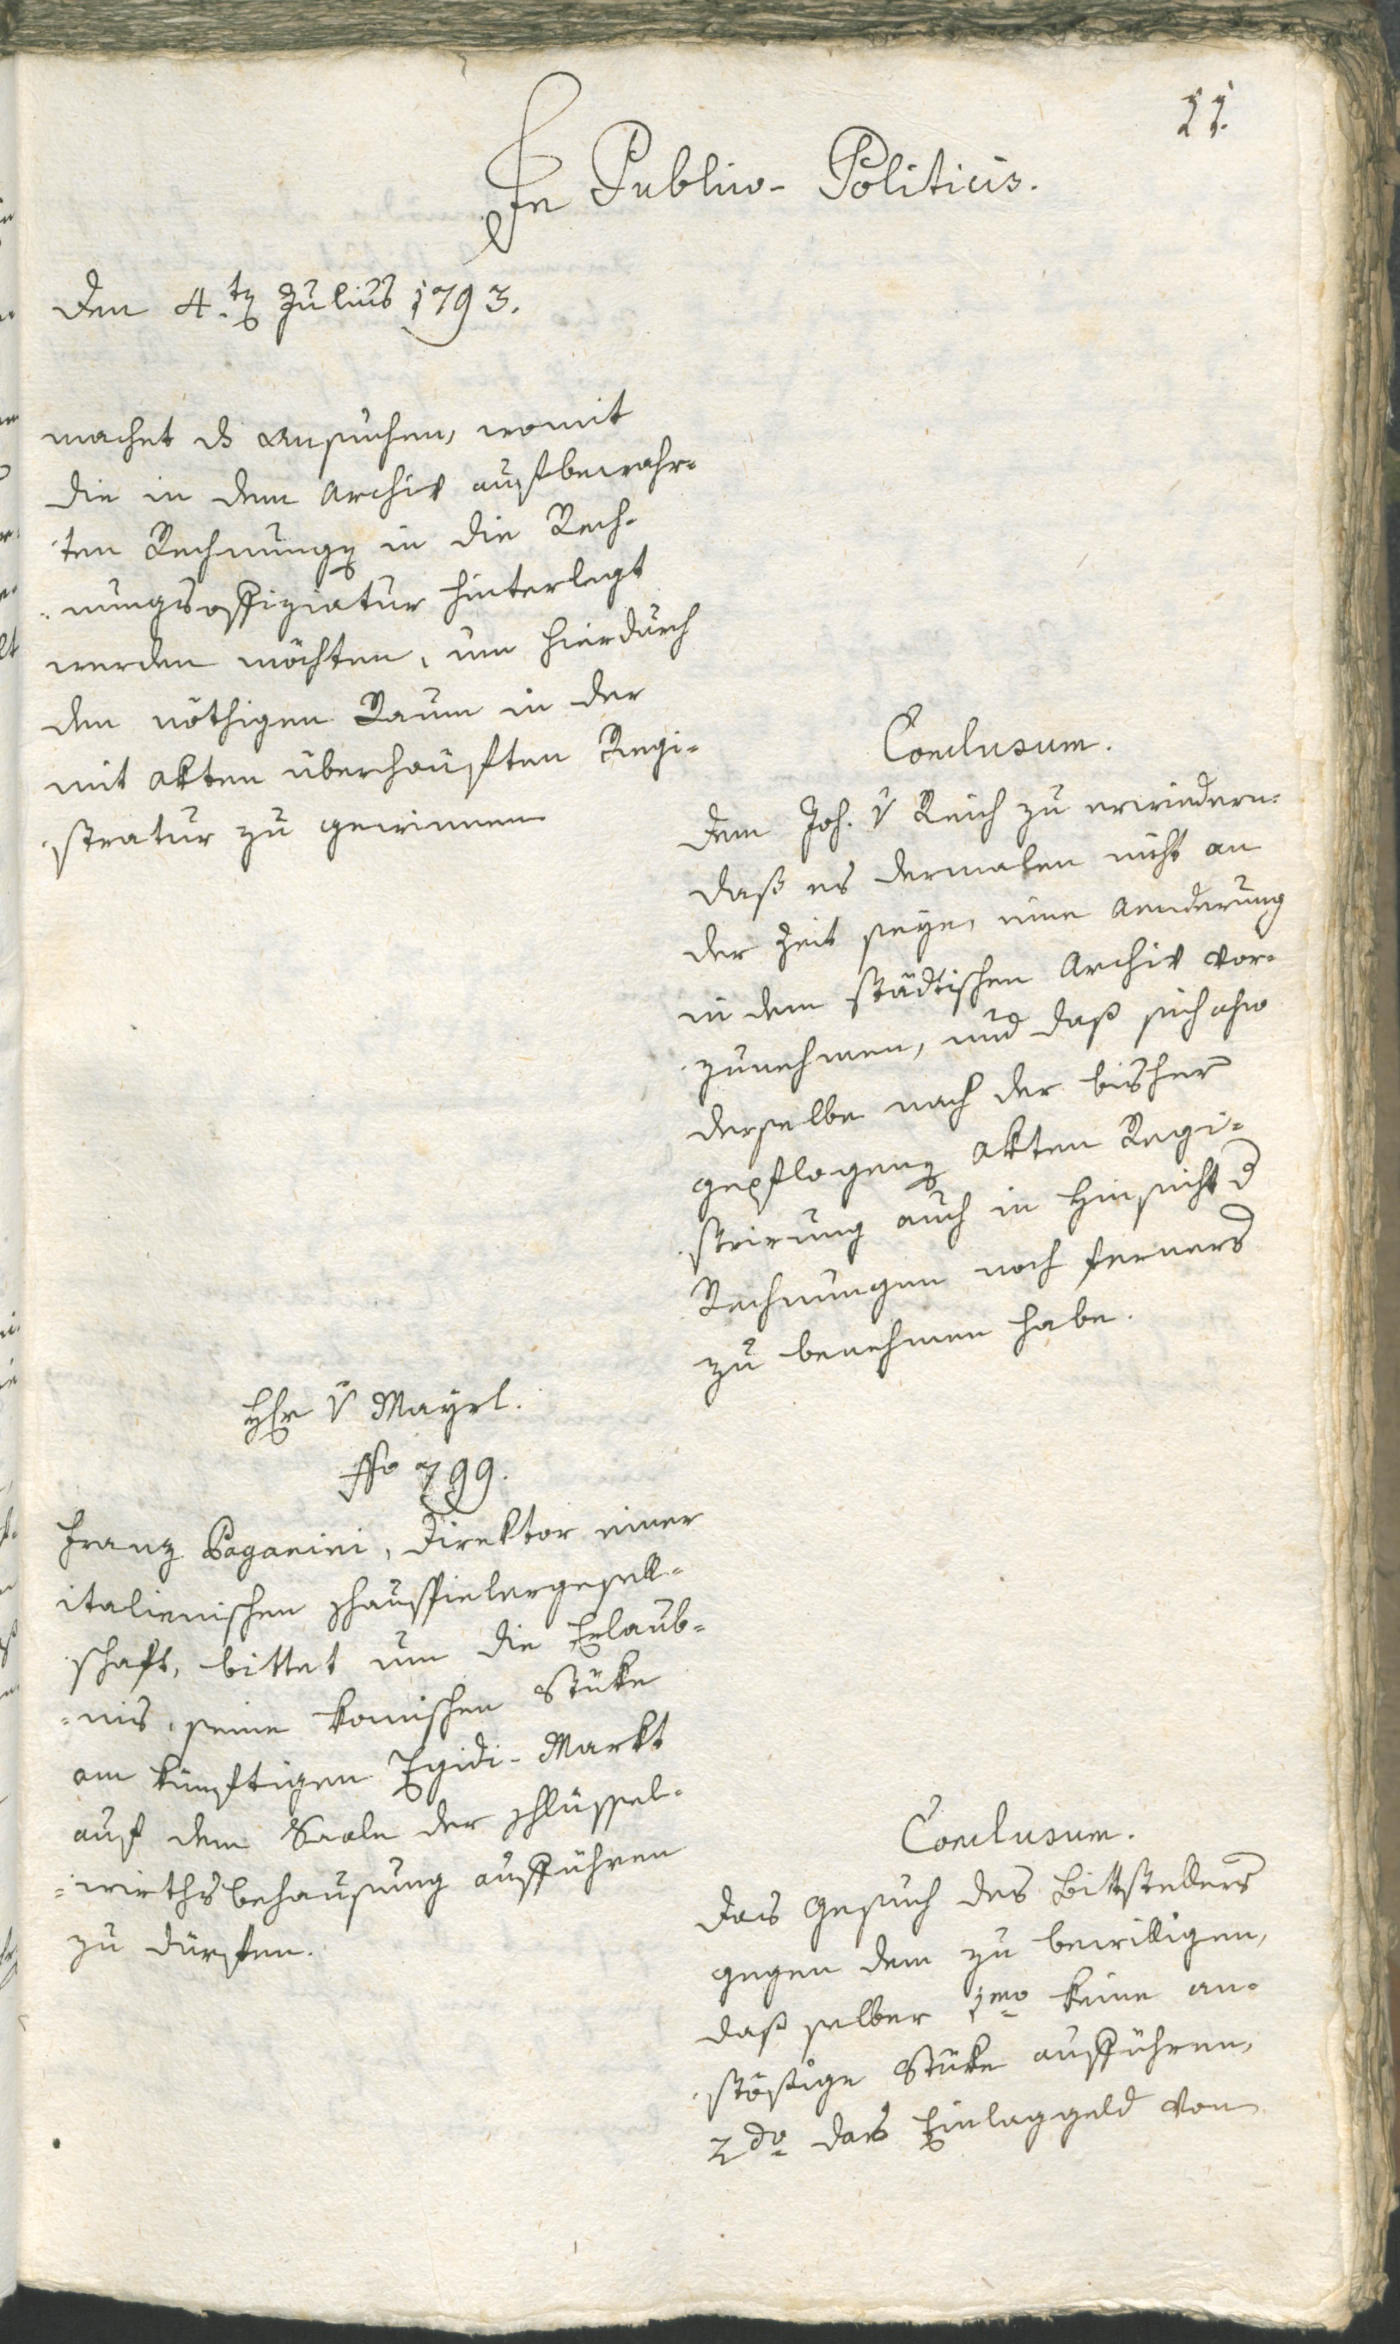 11.
In Publico-Politicis.
Den 4.ten Julius 1793.
machet das Ansuchen, womit
die in dem Archiv aufbewahr-
ten Rechnungen in die Rech-
nungsoffiziatur hinterlegt
werden möchten, um hierdurch
den nöthigen Raum in der
mit Akten überhäuften Regi-
stratur zu gewinnen
Conclusum.
Dem Joh. v Reich zu erwiedern:
daß es dermalen nicht an
der Zeit seye, eine Aenderung
in dem städtischen Archiv vor-
zunehmen, und daß sich also
derselbe nach der bisher
gepflogenen Akten Regi-
strirung auch in Hinsicht d
Rechnungen noch ferners
zu benehmen habe.
Hr v Mayrl.
No 799.
Franz Paganini, Direktor einer
italienischen Schauspielergesell-
schaft, bittet um die Erlaub-
nis, seine komischen Stüke
am künftigen Egidi-Markt
auf dem Saale der Schlüssel-
wirthsbehausung aufführen
zu dürfen.
Conclusum.
Das Gesuch des Bittstellers
gegen dem zu bewilligen,
daß selber 1mo keine an-
stößige Stüke aufführen,
2do das Einlaggeld von